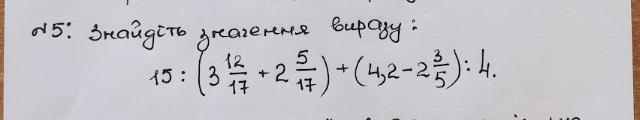 №5: Знайдіть значення виразу:
15 : (3 12/17 + 2 5/17) + (4,2 - 2 3/5) : 4.